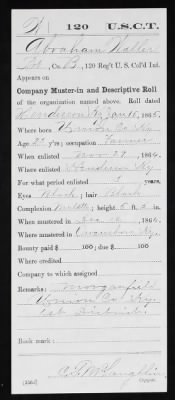 120 U.S.C.T.
Abraham Waller
Pvt., Co. B, 120 Reg't U. S. Col'd Inf.
Appears on
Company Muster-in and Descriptive Roll
of the organization named above. Roll dated
Henderson Ky Jan 15, 1865.
Where born Union Co. Ky
Age 2 y'rs; occupation Farmer
When enlisted Nov 29, 1864.
Where enlisted Henderson Ky
For what period enlisted 3 years.
Eyes Black; hair Black
Complexion; height 5 ft. 2 in.
When mustered in Dec 12, 1864.
Where mustered in Owensboro Ky.
Bounty paid $ 100; due $ 100
Where credited
Company to which assigned
Remarks: Morganfield
Union Co. Ky.
1st District.
Book mark:
Copyist.